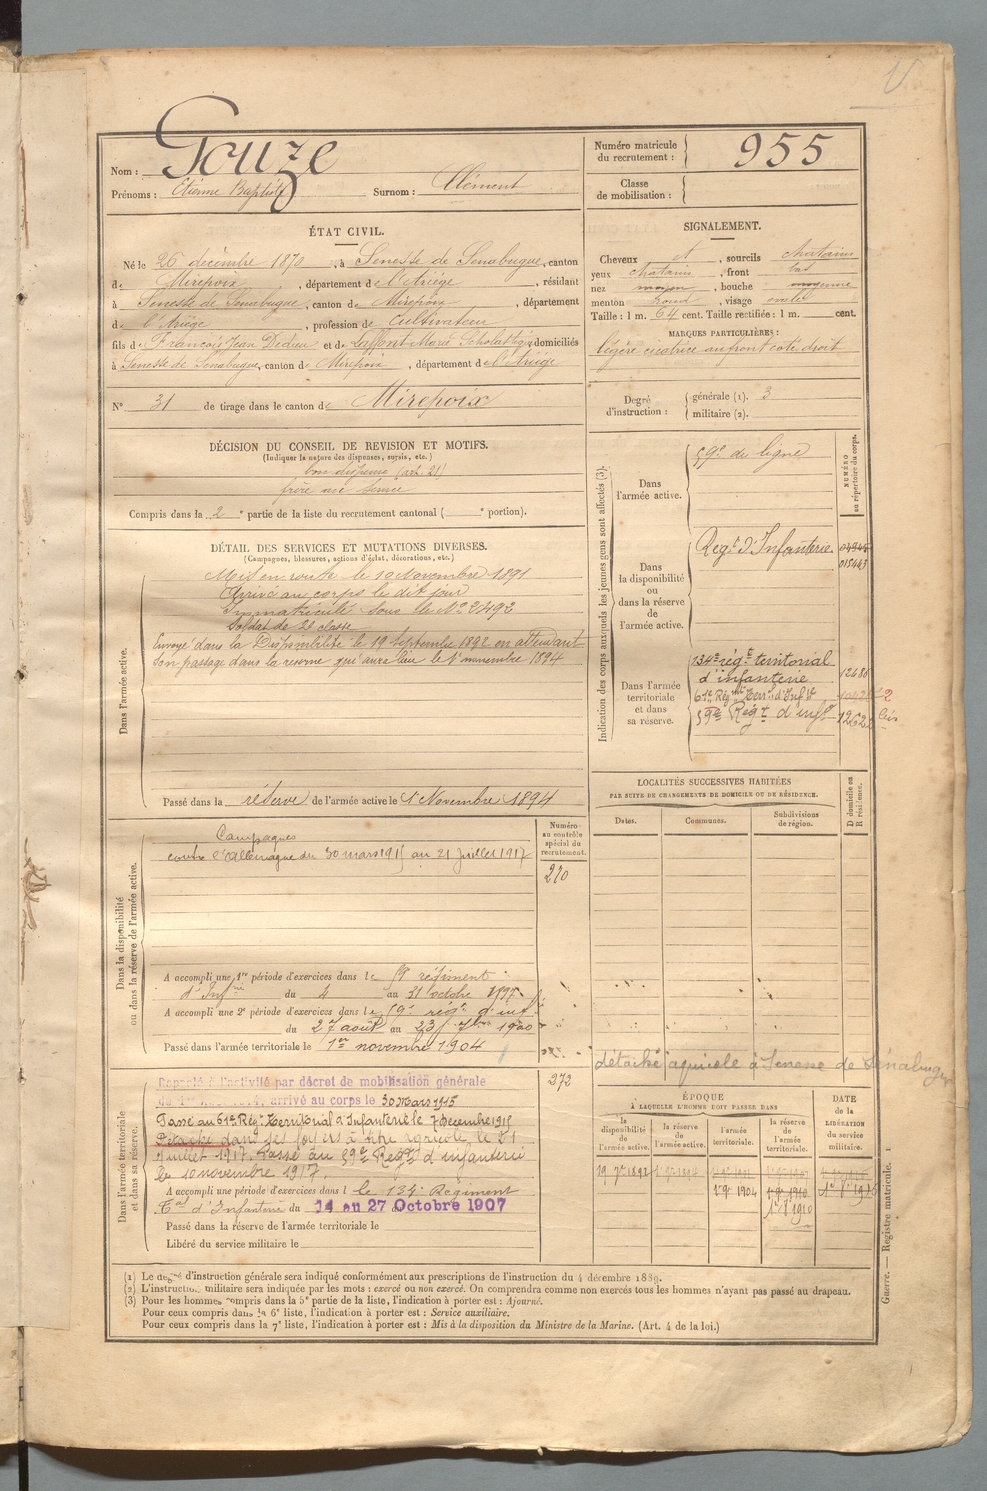 Nom : Gouze
Prénoms : Etienne Baptiste Surnom : Clément
Numéro matricule du recrutement : 955
Classe de mobilisation :
ÉTAT CIVIL.
Né le 26 décembre 1870, à Senesse de Senabugue, canton
de Mirepoix, département de l'Ariège, résidant
à Senesse de Senabugue, canton de Mirepoix, département
de l'Ariège, profession de Cultivateur
fils de François Jean Dedieu et de Laffont Marie Scholastique domiciliés
à Senesse de Senabugue, canton de Mirepoix, département de l'Ariège
N° 31 de tirage dans le canton de Mirepoix
SIGNALEMENT.
Cheveux et, sourcils chatains
yeux chatains, front bas
nez moyen, bouche moyenne
menton rond, visage ovale
Taille : 1 m. 64 cent. Taille rectifiée : 1 m. cent.
MARQUES PARTICULIÈRES :
légère cicatrice au front coté droit
Degré d'instruction : générale (1). 3
militaire (2).
DÉCISION DU CONSEIL DE REVISION ET MOTIFS.
(Indiquer la nature des dispenses, sursis, etc.)
bon dispensé (art. 21)
frère au service
Compris dans la 2e partie de la liste du recrutement cantonal ( e portion).
DÉTAIL DES SERVICES ET MUTATIONS DIVERSES.
(Campagnes, blessures, actions d'éclat, décorations, etc.)
Dans l'armée active.
Mis en route le 10 Novembre 1891
Arrivé au corps le dit jour
Immatriculé sous le No 2492
Soldat de 2e classe
Envoyé dans la Disponibilité le 19 Septembre 1892 en attendant
son passage dans la reserve qui aura lieu le 1er novembre 1894
Passé dans la réserve de l'armée active le 1er Novembre 1894
Indication des corps auxquels les jeunes gens sont affectés (3).
NUMÉRO au répertoire du corps.
Dans l'armée active.
59e de ligne
Dans la disponibilité ou dans la réserve de l'armée active.
Regt d'Infanterie
015443
Dans l'armée territoriale et dans sa réserve.
134e régt territorial
d'infanterie
12680
61e Régt Terrl d'Infie
59e Régt d'infie
bis
LOCALITÉS SUCCESSIVES HABITÉES
PAR SUITE DE CHANGEMENTS DE DOMICILE OU DE RÉSIDENCE.
Dates. Communes. Subdivisions de région. D domicile ou R résidence.
détaché agricole à Senesse de Sénabugue
Dans la disponibilité ou dans la réserve de l'armée active.
Numéro au contrôle spécial du recrutement.
270
Campagnes
contre l'Allemagne du 30 mars 1915 au 21 Juillet 1917
A accompli une 1re période d'exercices dans le 59 régiment
d'Infrie du 4 au 31 octobre 1897
A accompli une 2e période d'exercices dans le 59e régt d'inf.
du 27 août au 23 7bre 1900
Passé dans l'armée territoriale le 1er novembre 1904
Dans l'armée territoriale et dans sa réserve.
272
Rappelé à l'activité par décret de mobilisation générale
du 1er Aout 1914, arrivé au corps le 30 Mars 1915
Passé au 61e Régt Territorial d'Infanterie le 7 décembre 1915
Détaché dans ses foyers à titre agricole, le 21
Juillet 1917. Passé au 59e Régt d'infanterie
le 10 novembre 1917.
A accompli une période d'exercices dans le 134e Régiment
Tal d'Infanterie du 14 au 27 Octobre 1907
Passé dans la réserve de l'armée territoriale le
Libéré du service militaire le
ÉPOQUE
À LAQUELLE L'HOMME DOIT PASSER DANS
la disponibilité de l'armée active. la réserve de l'armée active. l'armée territoriale. la réserve de l'armée territoriale.
DATE de la LIBÉRATION du service militaire.
19 7bre 1892
1er 9bre 1904
1er 8bre 1910
1er 8bre 1916
(1) Le degré d'instruction générale sera indiqué conformément aux prescriptions de l'instruction du 4 décembre 1889.
(2) L'instruction militaire sera indiquée par les mots : exercé ou non exercé. On comprendra comme non exercés tous les hommes n'ayant pas passé au drapeau.
(3) Pour les hommes compris dans la 5e partie de la liste, l'indication à porter est : Ajourné.
Pour ceux compris dans la 6e liste, l'indication à porter est : Service auxiliaire.
Pour ceux compris dans la 7e liste, l'indication à porter est : Mis à la disposition du Ministre de la Marine. (Art. 4 de la loi.)
Guerre. — Registre matricule. 1